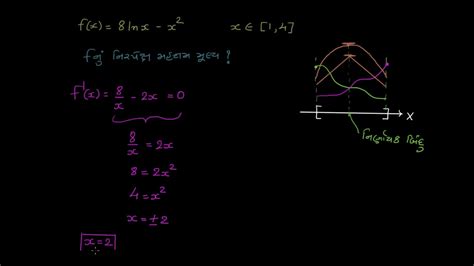 f(x) = 8 ln x − x²   x ∈ [1, 4]
f નું નિરપેક્ષ મહત્તમ મૂલ્ય ?
f'(x) = 8/x − 2x = 0
8/x = 2x
8 = 2x²
4 = x²
x = ± 2
x = 2
x
નિર્ણાયક બિંદુ